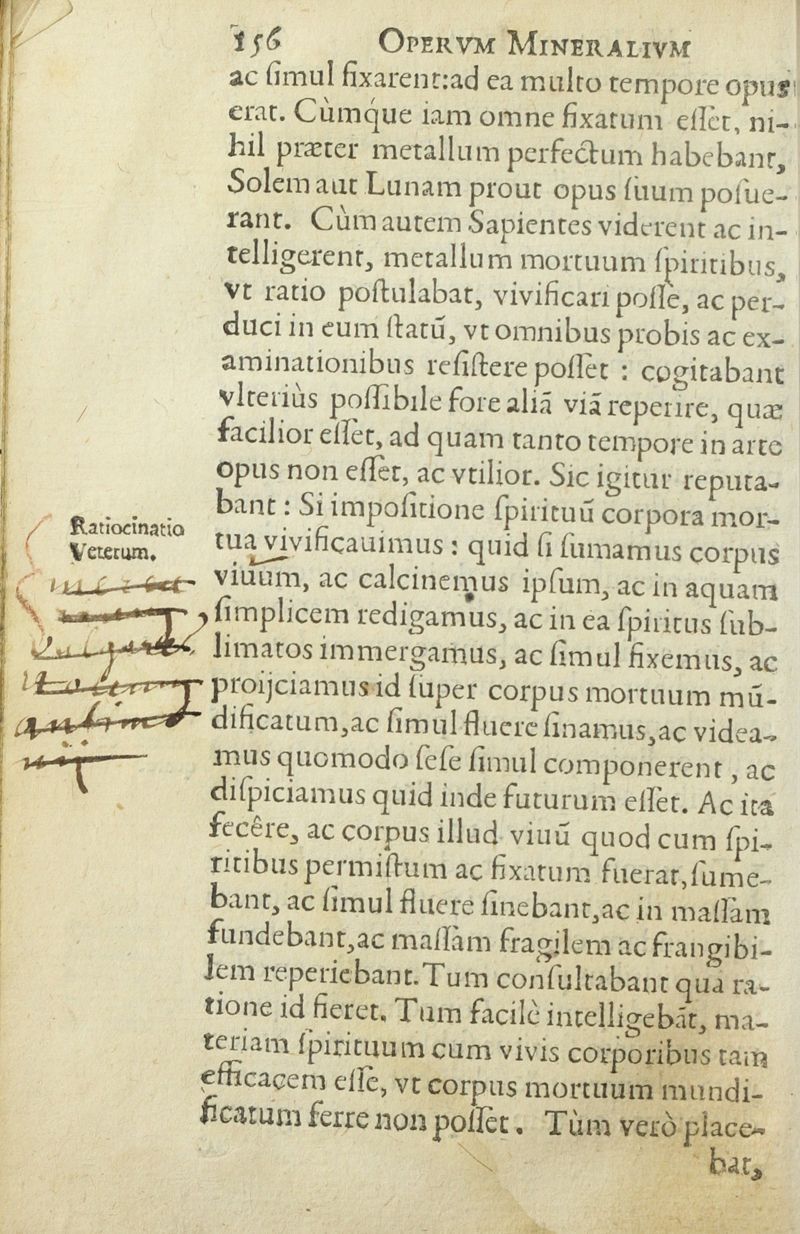 156 OPERVM MINERALIVM
ac ſimul fixarent: ad ea multo tempore opus
erat. Cùmque iam omne fixatum eſſet, ni-
hil præter metallum perfectum habebant,
Solem aut Lunam prout opus ſuum poſue-
rant. Cùm autem Sapientes viderent ac in-
telligerent, metallum mortuum ſpiritibus,
vt ratio poſtulabat, vivificari poſſe, ac per-
duci in eum ſtatū, vt omnibus probis ac ex-
aminationibus reſiſtere poſſet : cogitabant
vlteriùs poſſibile fore aliā viā reperire, quæ
facilior eſſet, ad quam tanto tempore in arte
opus non eſſet, ac vtilior. Sic igitur reputa-
bant : Si impoſitione ſpirituū corpora mor-
Ratiocinatio
Veterum.
tua vivificauimus : quid ſi ſumamus corpus
viuum, ac calcinemus ipſum, ac in aquam
ſimplicem redigamus, ac in ea ſpiritus ſub-
limatos immergamus, ac ſimul fixemus, ac
proijciamus id ſuper corpus mortuum mū-
dificatum, ac ſimul fluere ſinamus, ac videa-
mus quomodo ſeſe ſimul componerent , ac
diſpiciamus quid inde futurum eſſet. Ac ita
fecêre, ac corpus illud viuū quod cum ſpi-
ritibus permiſtum ac fixatum fuerat, ſume-
bant, ac ſimul fluere ſinebant, ac in maſſam
fundebant, ac maſſam fragilem ac frangibi-
lem reperiebant. Tum conſultabant qua ra-
tione id fieret. Tum facilè intelligebāt, ma-
teriam ſpirituum cum vivis corporibus tam
efficacem eſſe, vt corpus mortuum mundi-
ficatum ferre non poſſet. Tùm verò place-
bat,